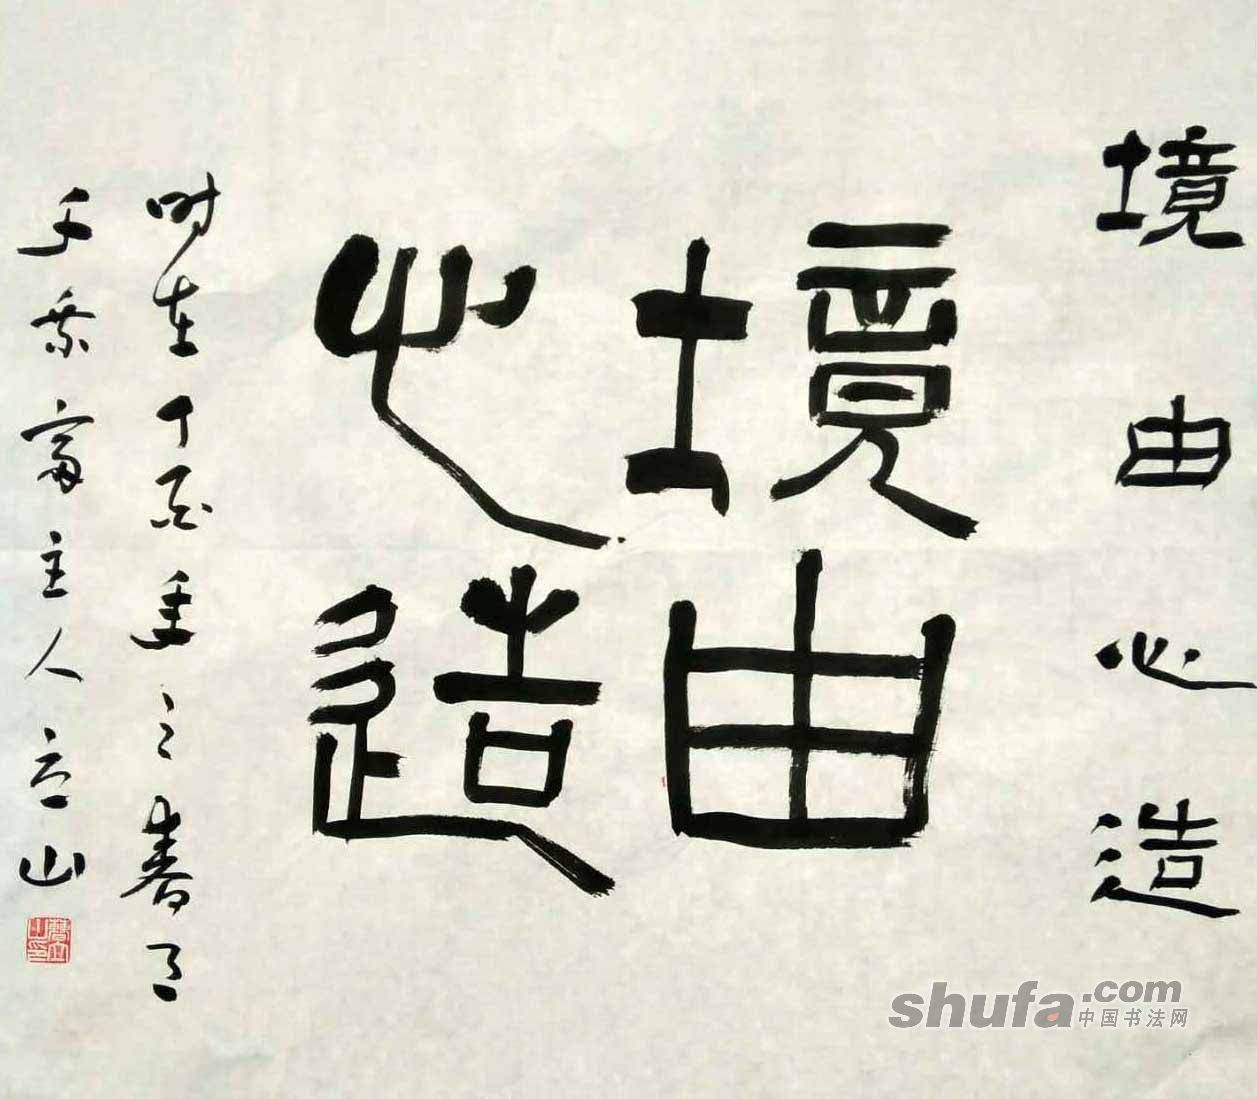 境由心造
境由
心造
時在丁酉年之春月
千乘齋主人立山
shufa.com
中国书法网